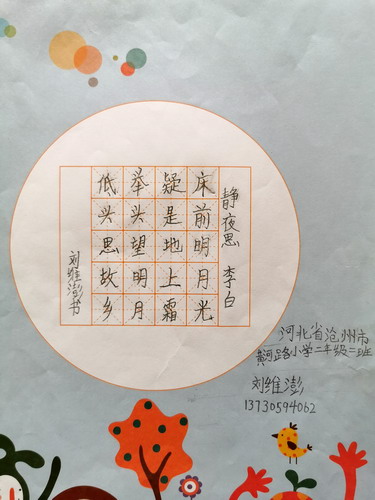 静夜思 李白
床前明月光
疑是地上霜
举头望明月
低头思故乡
刘维澎书
河北省沧州市
黄河路小学二年级二班
刘维澎
13730594062